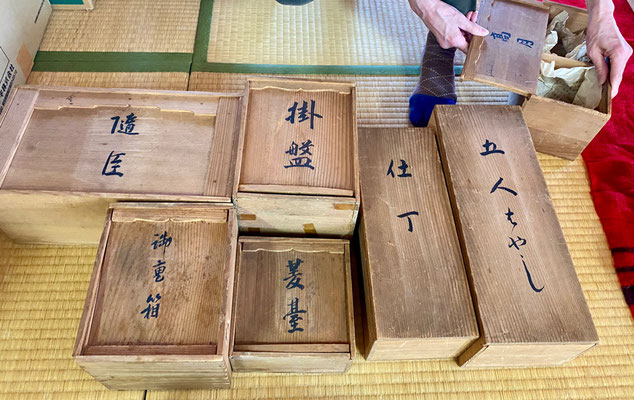 隨臣
掛盤
仕丁
五人はやし
御重箱
菱臺